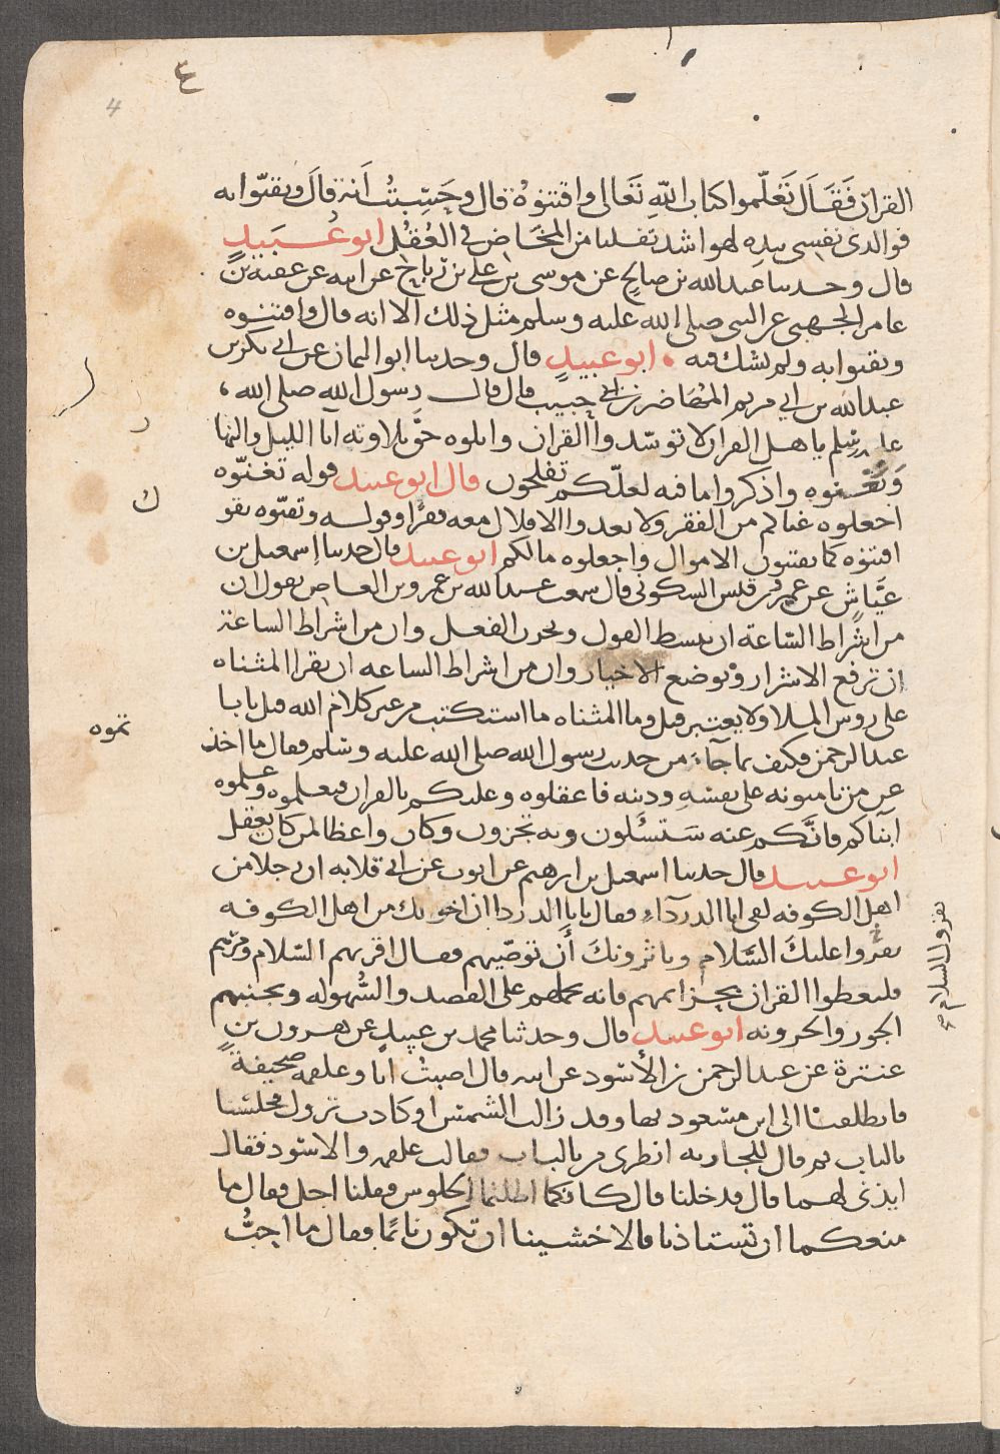 ٤
4
القران فَقَالَ تَعَلّموا كتاب اللّه تَعَالى واقتنوهُ قال وحَسِبتُ اَنه قالَ وتغنّوا به
فوالذى نفسى بيده لهو اشد تفلتا من المخَاض فى العُقُل ابو عُبَيدٍ
قال وحدثنا عبد الله بن صالح عن موسى بن على بن رباح عن ابيه عن عقبة بن
عامر الجهنى عن النبى صلى الله عليه وسلم مثل ذلك الا انه قال واقتنوه
وتغنوا به ولم يشك فيه ٠ ابو عبيدٍ قال وحدثنا ابو اليمان عن ابى بكر بن
عبد الله بن ابى مريم عن المهَاصر بن ابى حبيب قال قال رسول الله صلى الله
عليه وسلم يا هل القران لا توسّدوا القران واتلوه حقَّ تلاوته انا الليل والنها
وتغنوه واذكروا ما فيه لعلّكم تفلحون قال ابو عبيد قوله تغنّوه
اجعلوه غناكم من الفقر ولا تعدوا الاقلال معه فقرًا وقوله وتقنّوه يقو
اقتنوه كما تقتنون الاموال واجعلوه مالكم ابو عبيد قال حدثنا اسمعيل بن
عيَّاش عن عمرو بن قيس السكونى قال سمعت عبد الله بن عمرو بن العاص يقول ان
من اشراط السّاعة ان يبسط القول ويخزن الفعل وان من اشراط الساعة
ان ترفع الاشرار وتوضع الاخيار وان من اشراط الساعه ان تقرا المثناه
على روس الملا ولا يغير قيل وما المثناه ما استكتب من غير كلام الله قيل يابا
عبد الرحمن فكيف بما جآء من حديث رسول الله صلى الله عليه وسلم فقال ما اخذ
عن من تامنونه على نفسه ودينه فاعقلوه وعليكم بالقران فتعلموه وعلموه
ابنآكم فانَّكم عنه سَتسئلون وبه تجزون وكفى به واعظا لمن كان يعقل
ابو عبيد قال حدثنا اسمعيل بن ابرهيم عن ايوب عن ابى قلابه ان رجلا من
اهل الكوفه لقى ابا الدردآء فقال يابا الدردا ان اخوانك من اهل الكوفه
يقرّوا عليكَ السَّلام ويامرونكَ أَن توصّيهم فقال اقريهم السّلام ومرهم
فليعطوا القران بخزائمهم فانه يحملهم على القصد والسُّهوله ويجنبهم
الجور والحزونه ابو عبيد قال وحدثنا محمد بن عبيدٍ عن هرون بن
عنترة عن عبد الرحمن بن الأسود عن ابيه قال اصبتُ انا وعلقمه صحيفة
فانطلقنا الى ابن مسعود بها وقد زالت الشمس او كادت تزول فجلسنا
بالباب ثم قال للجاريه انظرى من بالباب فقالت علقمه والاسود فقال
ايذنى لهما قال فدخلنا قال كانكما اطلتما الجلوس فقلنا اجل قال ما
منعكما ان تستاذنا قالا خشينا ان تكون نائمًا فقال ما احبُّ
ر
ك
تموه
يقرون السلام
صح